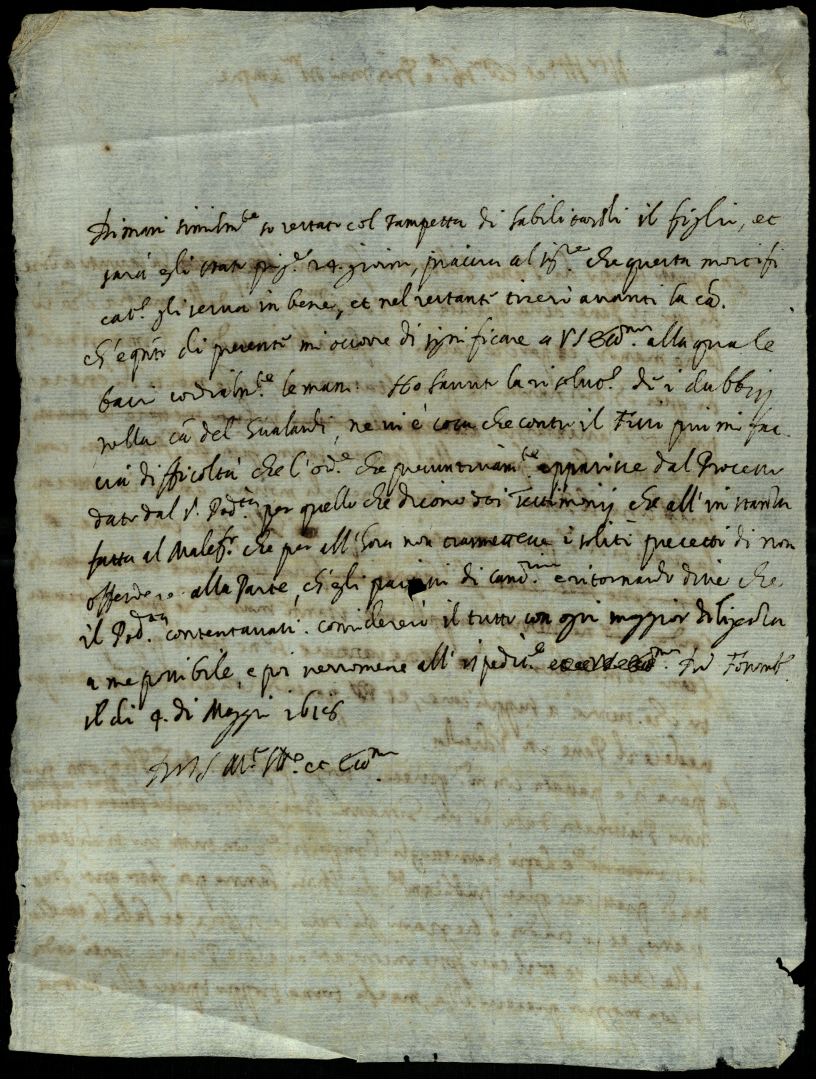 Dimani similm.te so restato col Tampetta di habilitarli il figlio, et
sarà egli stato prig.e 24. giorni, piaccia al Sig.re che questa mortifi
cat.e gli serva in bene, et nel restante tirerò avanti la cã.
Ch'è q.to di presente mi occorre di significare a V S Ecc.ma alla quale
bacio cordialm.te le mani. Ho havuto la risolut.e de i dubbij
nella cã del Gualandi, ne vi è cosa che contro il Turi più mi fac
cia difficoltà che l'od.e che presuntivam.te apparisce dal Processo
dato dal s. Pod.tà per quello che dicono doi Testimonij che all'instanza
fatta al Malef.o che per all'hora non trasmettesse i soliti precetti di non
offendere alla Parte, ch'egli di e ritornando disse che
il Pod.tà contentavasi. considererò il tutto con ogni maggior diligenza
a me possibile, e poi verromene all'ispedit.e Di Fosomb.e
il di 4. di Maggio 1618
Di V S. M.to Ill.e et Ecc.ma